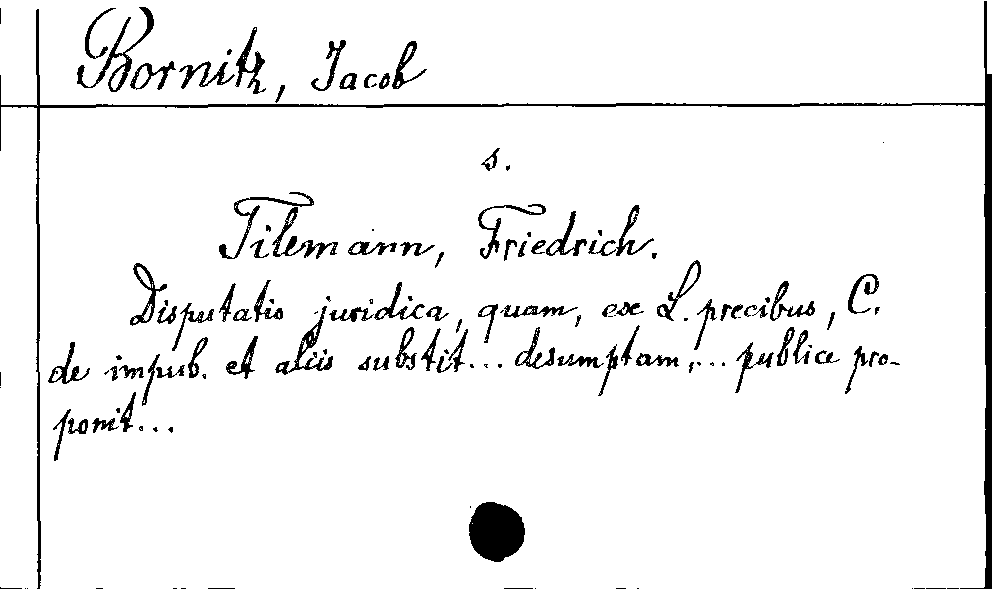 Bornitz, Jacob
s.
Tilemann, Friedrich.
Disputatio juridica, quam, ex L. precibus, C.
de impub. et aliis substit... desumptam,... publice pro-
ponit...